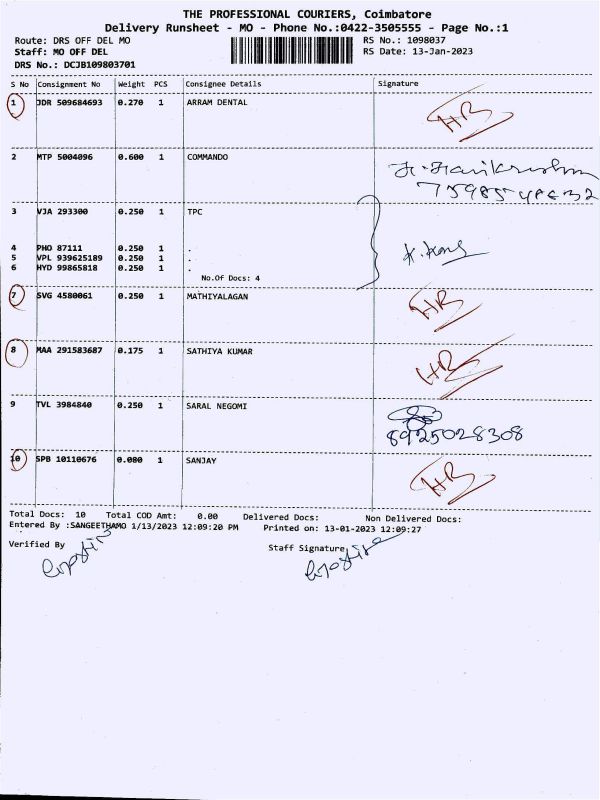 THE PROFESSIONAL COURIERS, Coimbatore
Delivery Runsheet - MO - Phone No.:0422-3505555 - Page No.:1
Route: DRS OFF DEL MO RS No.: 1098037
Staff: MO OFF DEL RS Date: 13-Jan-2023
DRS No.: DCJB109803701
S No Consignment No Weight PCS Consignee Details Signature
1 JDR 509684693 0.270 1 ARRAM DENTAL HR
2 MTP 5004096 0.600 1 COMMANDO
3 VJA 293300 0.250 1 TPC
4 PHO 87111 0.250 1 .
5 VPL 939625189 0.250 1 .
6 HYD 99865818 0.250 1 .
No.Of Docs: 4
7 SVG 4580061 0.250 1 MATHIYALAGAN HR
8 MAA 291583687 0.175 1 SATHIYA KUMAR HR
9 TVL 3984840 0.250 1 SARAL NEGOMI
8925028308
10 SPB 10110676 0.080 1 SANJAY HR
Total Docs: 10 Total COD Amt: 0.00 Delivered Docs: Non Delivered Docs:
Entered By :SANGEETHAMO 1/13/2023 12:09:20 PM Printed on: 13-01-2023 12:09:27
Verified By Staff Signature